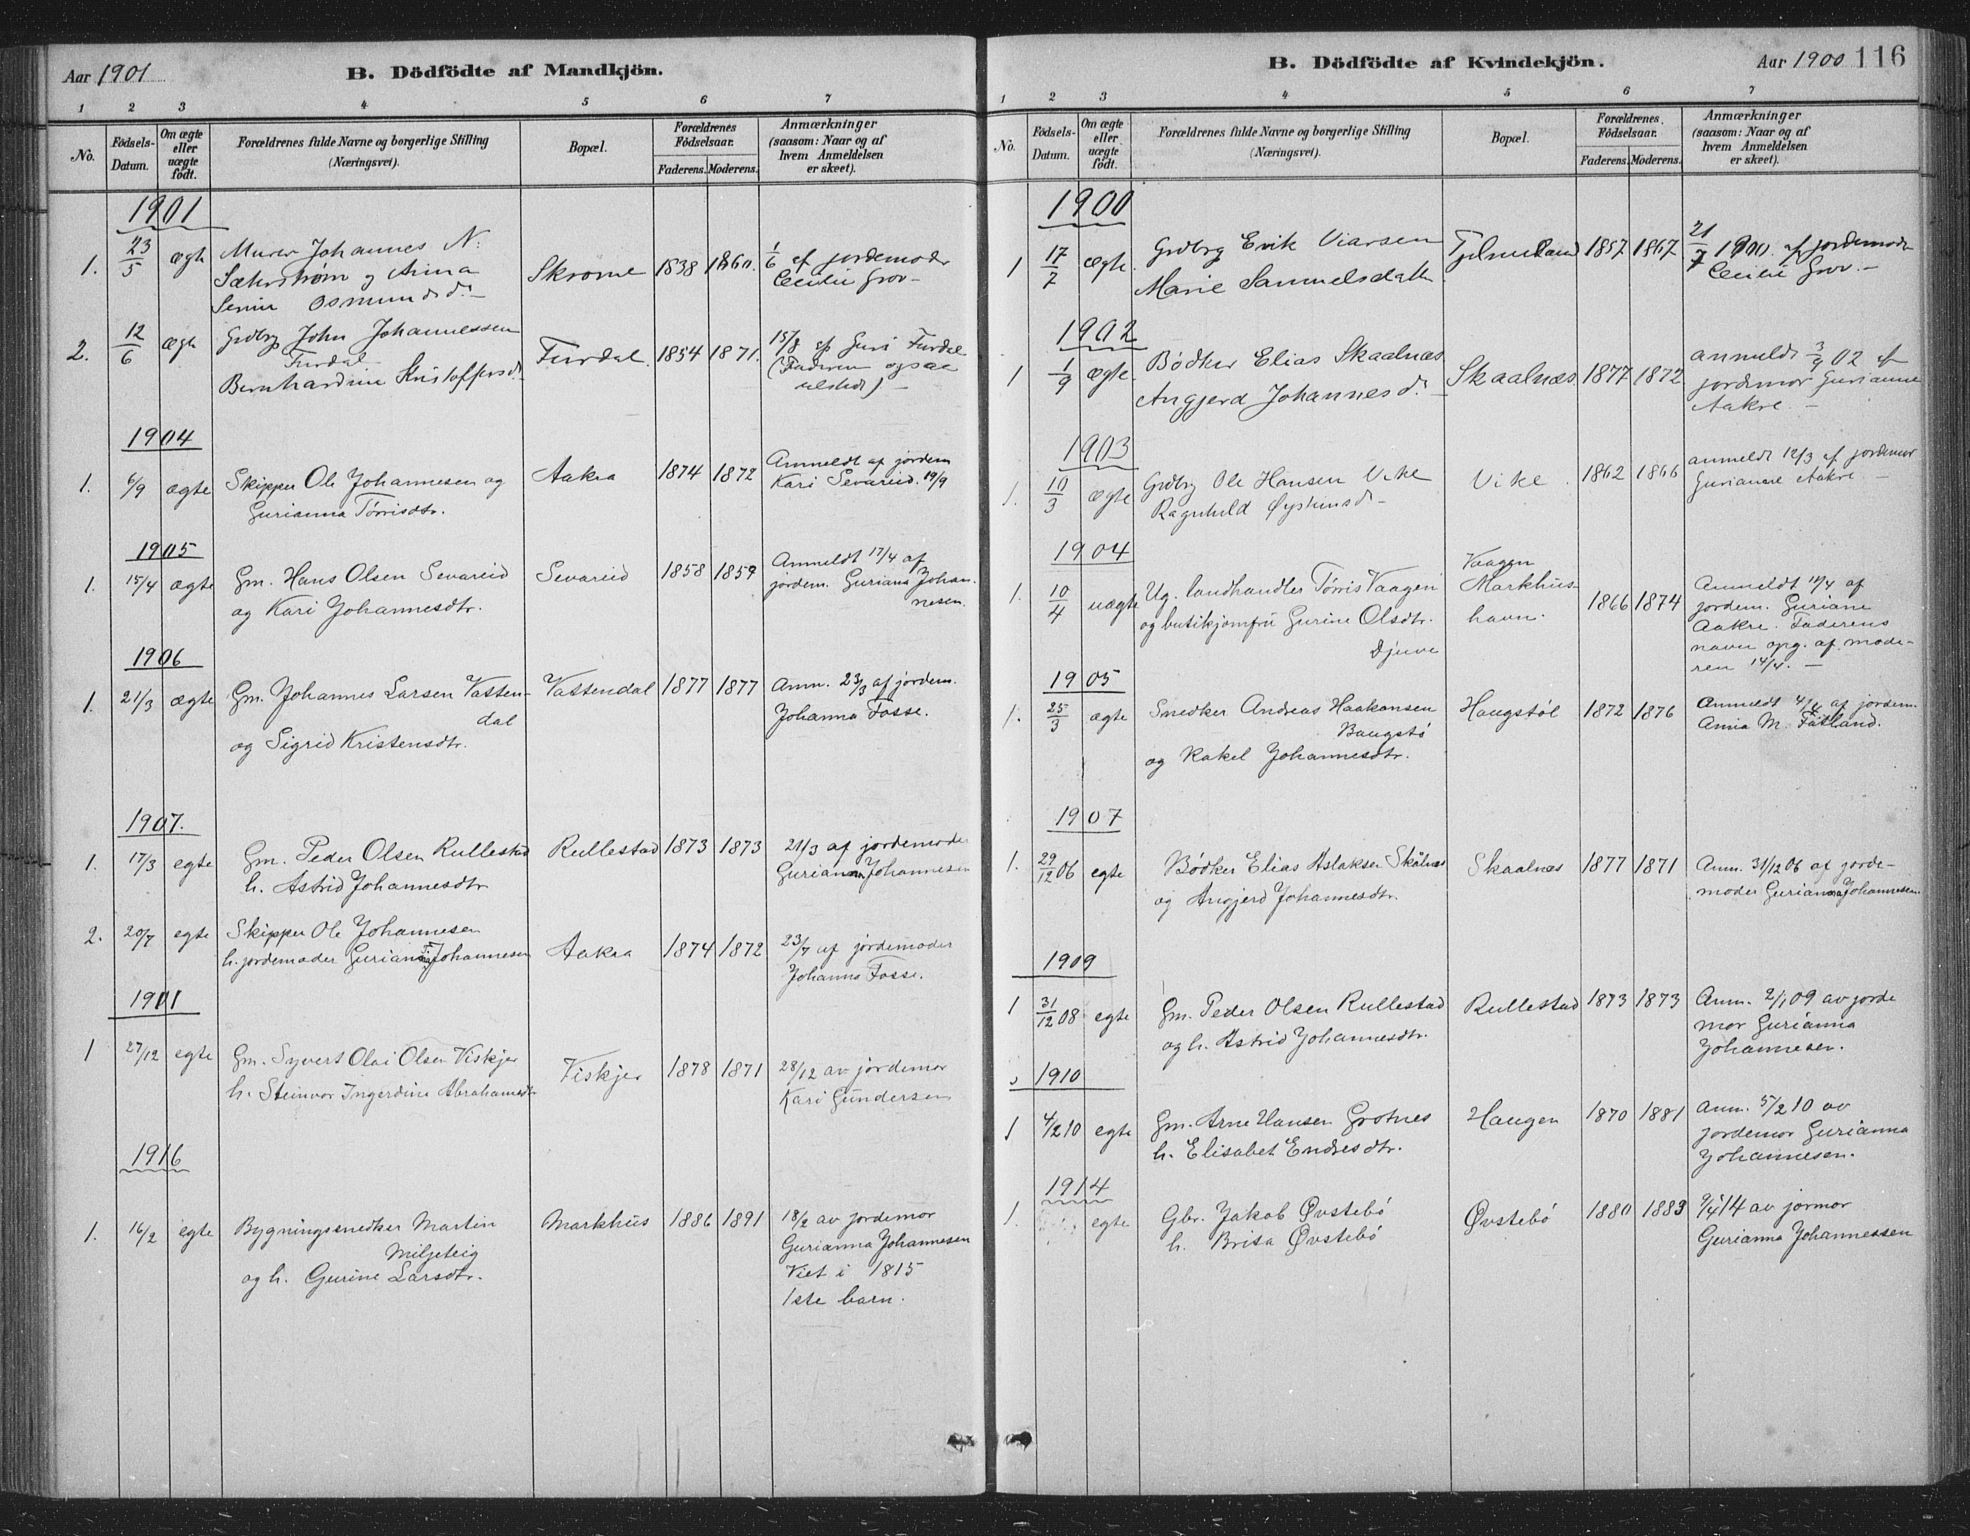 Aar 1901
B. Dödfödte af Mandkjön.
1 2 3 4 5 6 7
No.
Födsels-
Datum.
Om ægte
eller
uægte
födt.
Forældrenes fulde Navne og borgerlige Stilling
(Næringsvei).
Bopæl.
Forældrenes
Födselsaar.
Faderens. Moderens.
Anmærkninger
(saasom: Naar og af
hvem Anmeldelsen
er skeet).
1901
1. 23/5 ægte Murer Johannes N: Skromme 1838 1860. 1/6 af jordemoder
og Anna Cecilie Grov-
Serine Osmundsd. -
2. 12/6 ægte Grdbrg John Johannessen Furdal 1854 1871. 15/8 af Guri Furdal
Furdal (Faderen ogsaa
Bernhardine Kristoffersd. tilsted) -
1904
1. 6/9 ægte Skipper Ole Johannesen og Aakra 1874 1872 Anmeldt af jordem
Gurianna Törrisdtr. Kari Sevareid. 19/9
1905
1. 15/4 ægte Gm. Hans Olsen Sevareid Sevareid 1858 1859 Anmeldt 17/4 af
og Kari Johannesdtr. jordem. Guriana Johan-
nesen.
1906
1. 21/3 ægte Gm. Johannes Larsen Vatten- Vattendal 1877 1877 Anm. 23/3 af jordem.
dal Johanna Fosse.
og Sigrid Kristensdtr.
1907.
1. 17/3 egte Gm. Peder Olsen Rullestad Rullestad 1873 1873 21/3 af jordemoder
h. Astrid Johannesdtr Gurianna Johannesen
2. 20/7 egte Skipper Ole Johannesen Aakra 1874 1872 23/7 af jordemoder
h. jordemoder Gurianna Johannesen Johanna Fosse.
1911
1 27/12 egte Gm. Syvert Olai Olsen Viskjer Viskjer 1878 1871 28/12 av jordemor
h. Steinvor Ingerdine Abrahamsdtr Kari Gundersen
1916
1. 16/2 egte Bygningssnedker Martin Markhus 1886 1891 18/2 av jordemor
Miljeteig Gurianna Johannesen
og h. Gurine Larsdtr. Viet i 1815
1ste barn.
Aar 1900 116
B. Dödfödte af Kvindekjön.
1 2 3 4 5 6 7
No.
Födsels-
Datum.
Om ægte
eller
uægte
födt.
Forældrenes fulde Navne og borgerlige Stilling
(Næringsvei).
Bopæl.
Forældrenes
Födselsaar.
Faderens. Moderens.
Anmærkninger
(saasom: Naar og af
hvem Anmeldelsen
er skeet).
1900
1 17/7 ægte. Grdbrg Erik Viarsen Fjelmeland 1857 1867 21/7 1900. af jordemoder
Marie Samuelsdatt. Cecilie Grov. -
1902
1 1/9 ægte. Bödker Elias Skaalnæs Skaalnæs 1877 1872 anmeldt 3/9 02 af
Angjerd Johannesd. - jordemor Gurianne
Aakre. -
1903
1. 10/3 ægte Grdbrg Ole Hansen Vike Vike. 1862 1866 anmeldt 12/3 af jordemor
Ragnhild Øystensd - Gurianne Aakre. -
1904
1. 10/4 uægte Ug. landhandler Tørris Vaagen Vaagen
Markhus-
havn. 1866 1874 Anmeldt 14/4 af
og butikjomfru Gurine Olsdtr. jordem. Guriane
Djuve Aakre. Faderens
navn opg. af mode-
ren 14/4. -
1905
1. 25/3 ægte Snedker Andreas Haakonsen Haugstøl 1872 1876 Anmeldt 4/4 af jordem.
Haugstø Anna M. Fatland.
og Rakel Johannesdtr.
1907
1. 29/12 06 egte Bödker Elias Aslaksen Skålnes Skaalnæs 1877 1871 Anm. 31/12 06 af jorde-
og Angjerd Johannesdtr. moder Gurianna Johannesen
1909
1 31/12 08 egte Gm. Peder Olsen Rullestad Rullestad 1873 1873 Anm. 2/1 09 av jorde
og h. Astrid Johannesdtr. mor Gurianna
Johannesen.
1910
1 4/2 10 egte Gm. Arne Hansen Grotnes Haugen 1870 1881 Anm. 5/2 10 av
h. Elisabet Endresdtr. jordemor Gurianna
Johannesen.
1914
1. egte Gbr. Jakob Øvstebö Øvstebö 1880 1883 9/4 14 av jormor
h. Brita Øvstebö Gurianna Johannessen